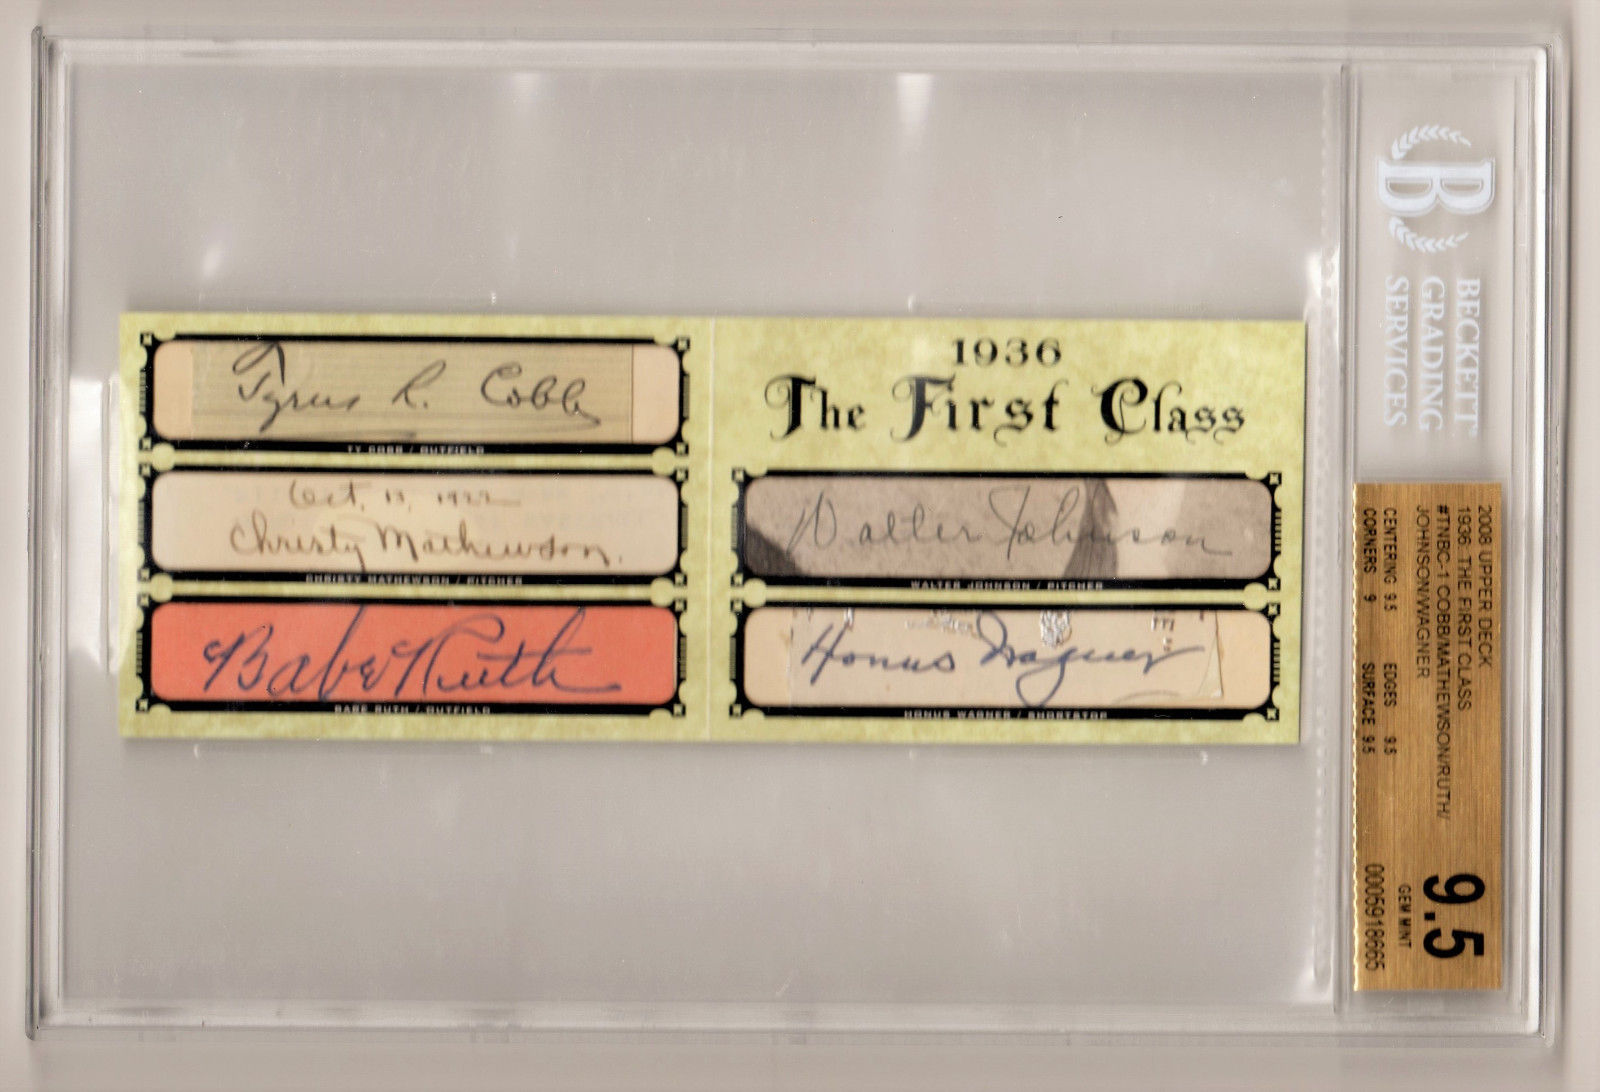 Tyrus R. Cobb
TY COBB / OUTFIELD
Oct. 13, 1922
Christy Mathewson.
CHRISTY MATHEWSON / PITCHER
Babe Ruth
BABE RUTH / OUTFIELD
1936
The First Class
Walter Johnson
WALTER JOHNSON / PITCHER
EE"
Honus Wagner
HONUS WAGNER / SHORTSTOP
B
BECKETT
GRADING
SERVICES
2008 UPPER DECK
1936 THE FIRST CLASS
#TNBC-1 COBB/MATHEWSON/RUTH/
JOHNSON/WAGNER
CENTERING 9.5 EDGES 9.5
CORNERS 9 SURFACE 9.5
9.5
GEM MINT
0005918665